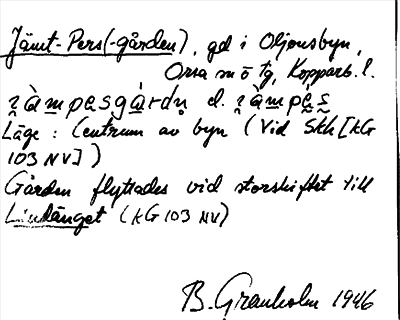 Jämt-Pers(-gården), gd i Oljonsbyn,
Orsa sn ö tg, Kopparb. l.
Läge: Centrum av byn (Vid Skh [kG
103 NV])
Gården flyttades vid storskiftet till
Lindänget (kG 103 NV)
B. Granholm 1946